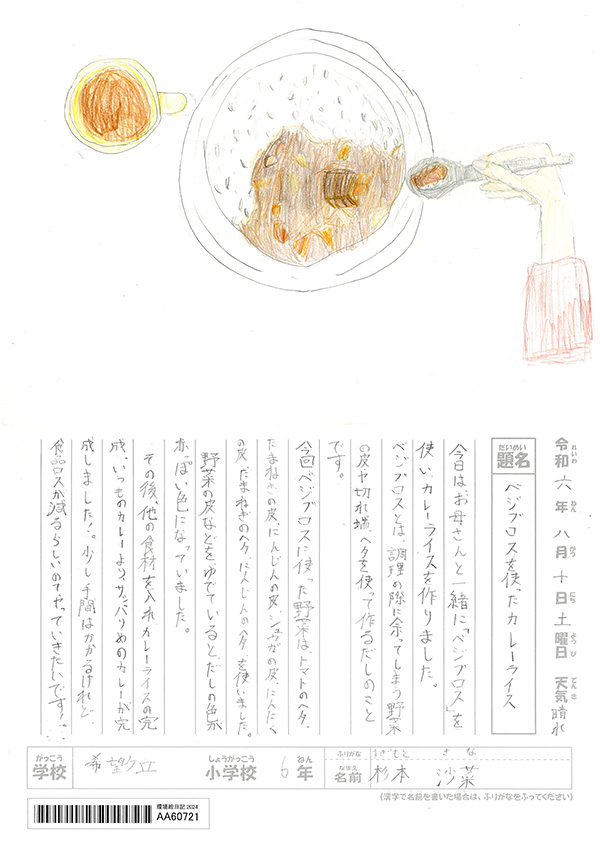 令和六年八月十日土曜日 天気晴れ
れいわ ねん がつ にち ようび てんき
だいめい
題名 ベジブロスを使ったカレーライス
今日は、お母さんと一緒に「ベジブロス」を
使い、カレーライスを作りました。
ベジブロスとは、調理の際に余ってしまう野菜
の皮や切れ端、ヘタを使って作るだしのこと
です。
今回ベジブロスに使った野菜は、トマトのヘタ、
たまねぎの皮、にんじんの皮、ショウガの皮、にんにく
の皮、だまねぎのヘタ、にんじんのヘタ を使いました。
野菜の皮などをゆでていると、だしの色が
赤っぽい色になっていました。
その後、他の食材を入れ、カレーライスの完
成。いつものカレーより、サッパリめのカレーが完
成しました!。少し手間はかかるけれど、
食品ロスが減るらしいのでやっていきたいです!。
がっこう
学校 希望ケ丘
しょうがっこう
小学校 6年
ねん
ふりがな すぎもと さな
なまえ
名前 杉本 沙菜
(漢字で名前を書いた場合は、ふりがなをふってください)
環境絵日記 2024
AA60721